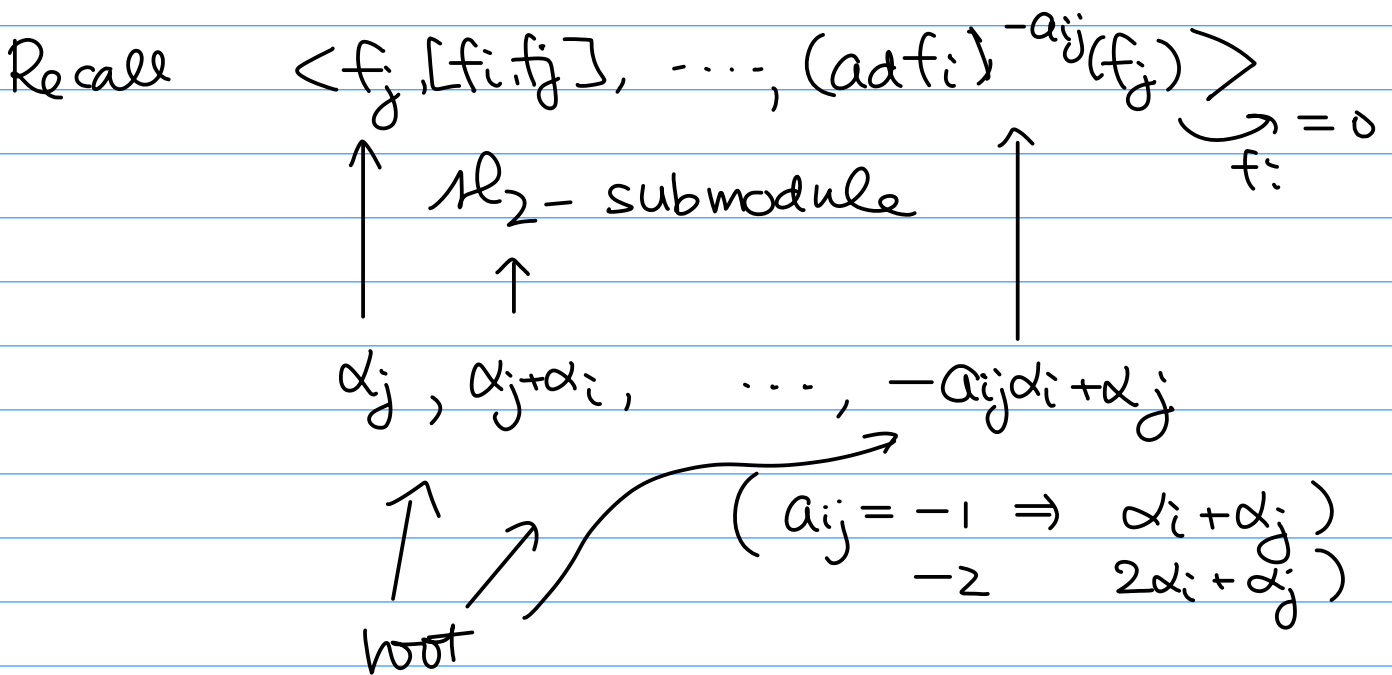 Recall <f_j, [f_i, f_j], ....., (ad f_i)^{-a_{ij}}(f_j)>
= 0
f_i
sl_2 - submodule
α_j, α_j+α_i, ..., -a_{ij}α_i+α_j
(a_{ij} = -1 ⇒ α_i+α_j)
-2 2α_i+α_j)
root